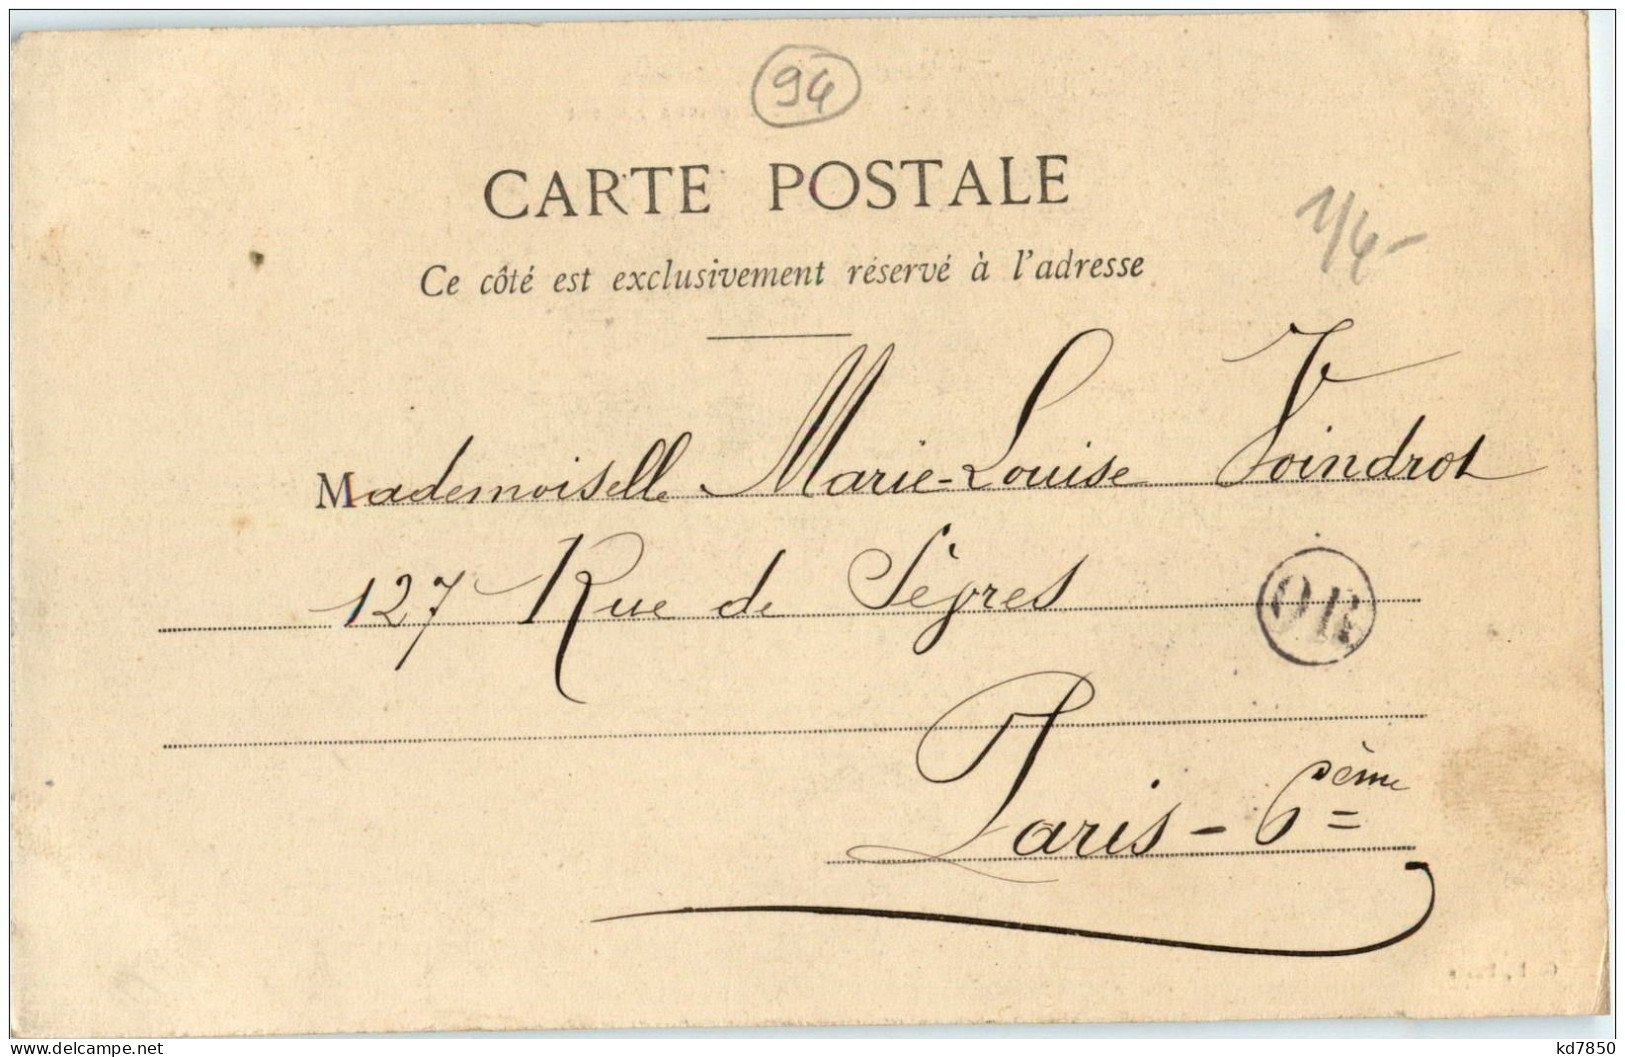 94
CARTE POSTALE
1/4-
Ce côté est exclusivement réservé à l'adresse
Mademoiselle Marie-Louise Voindrot
127 Rue de Sèvres
OR
Paris - 6ème
www.delcampe.net
kd7850